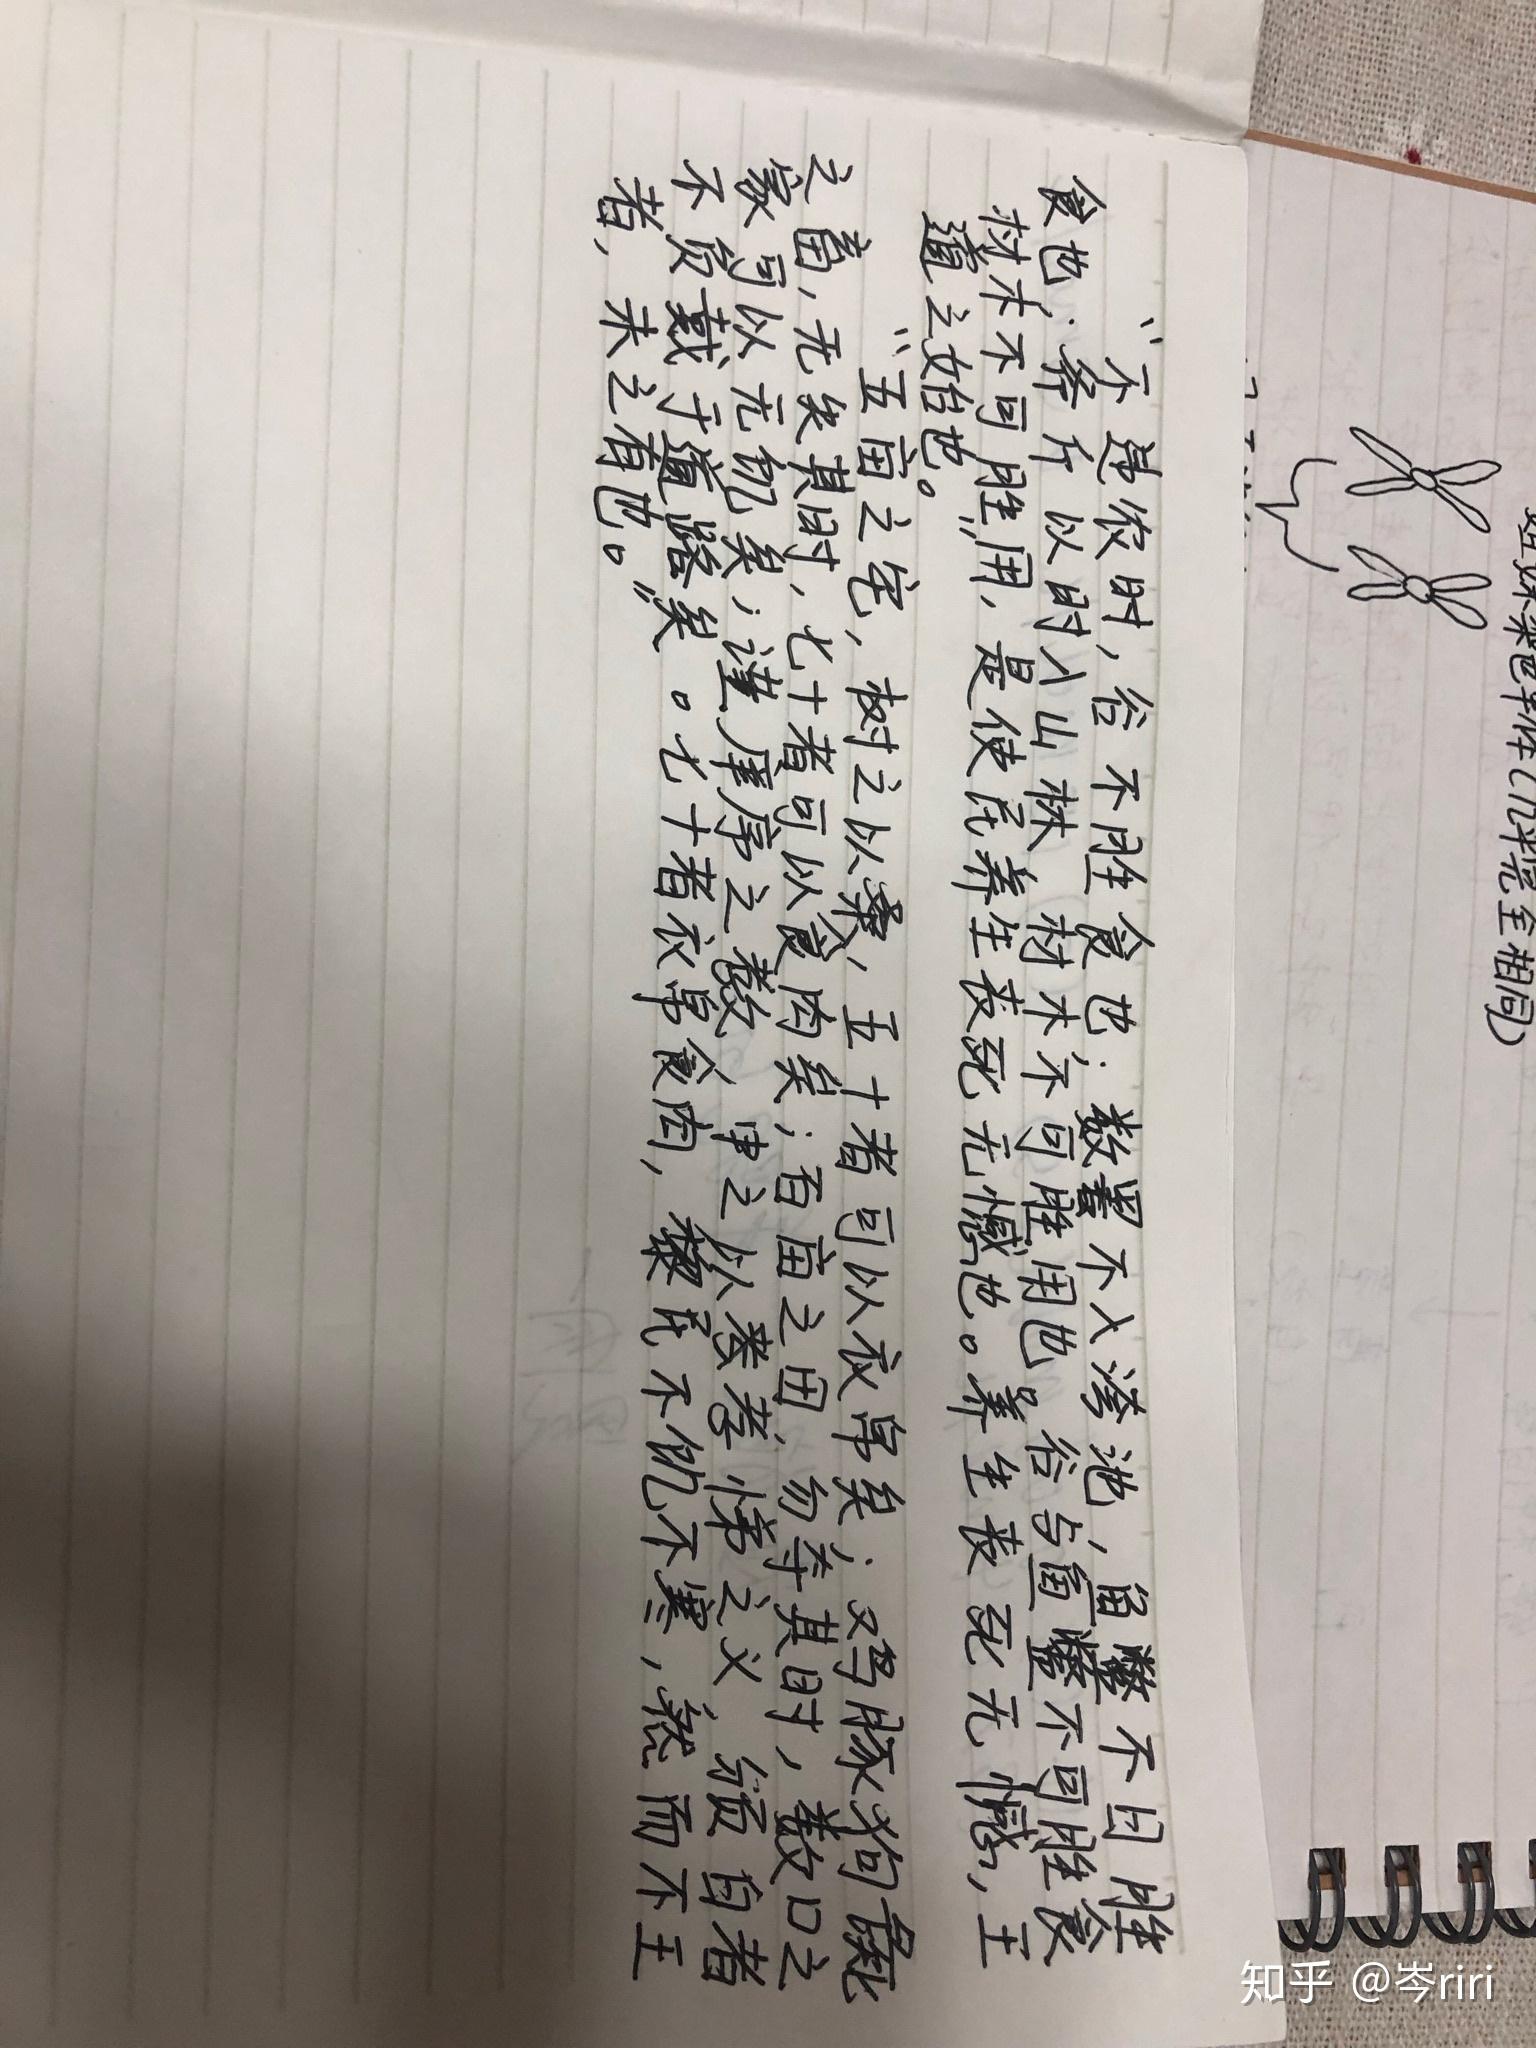 姐妹染色单体(几乎完全相同)
“不违农时，谷不胜食也；数罟不入洿池，鱼鳖不日胜
食也；斧斤以时入山林，材木不可胜用也。谷与鱼鳖不可胜食，
材木不可胜用，是使民养生丧死无憾也。养生丧死无憾，王
道之始也。”
“五亩之宅，树之以桑，五十者可以衣帛矣；鸡豚狗彘
之畜，无失其时，七十者可以食肉矣；百亩之田，勿夺其时，数口之
家可以无饥矣；谨庠序之教，申之以孝悌之义，颁白者
不负戴于道路矣。七十者衣帛食肉，黎民不饥不寒，然而不王
者，未之有也。”
知乎 @岑riri